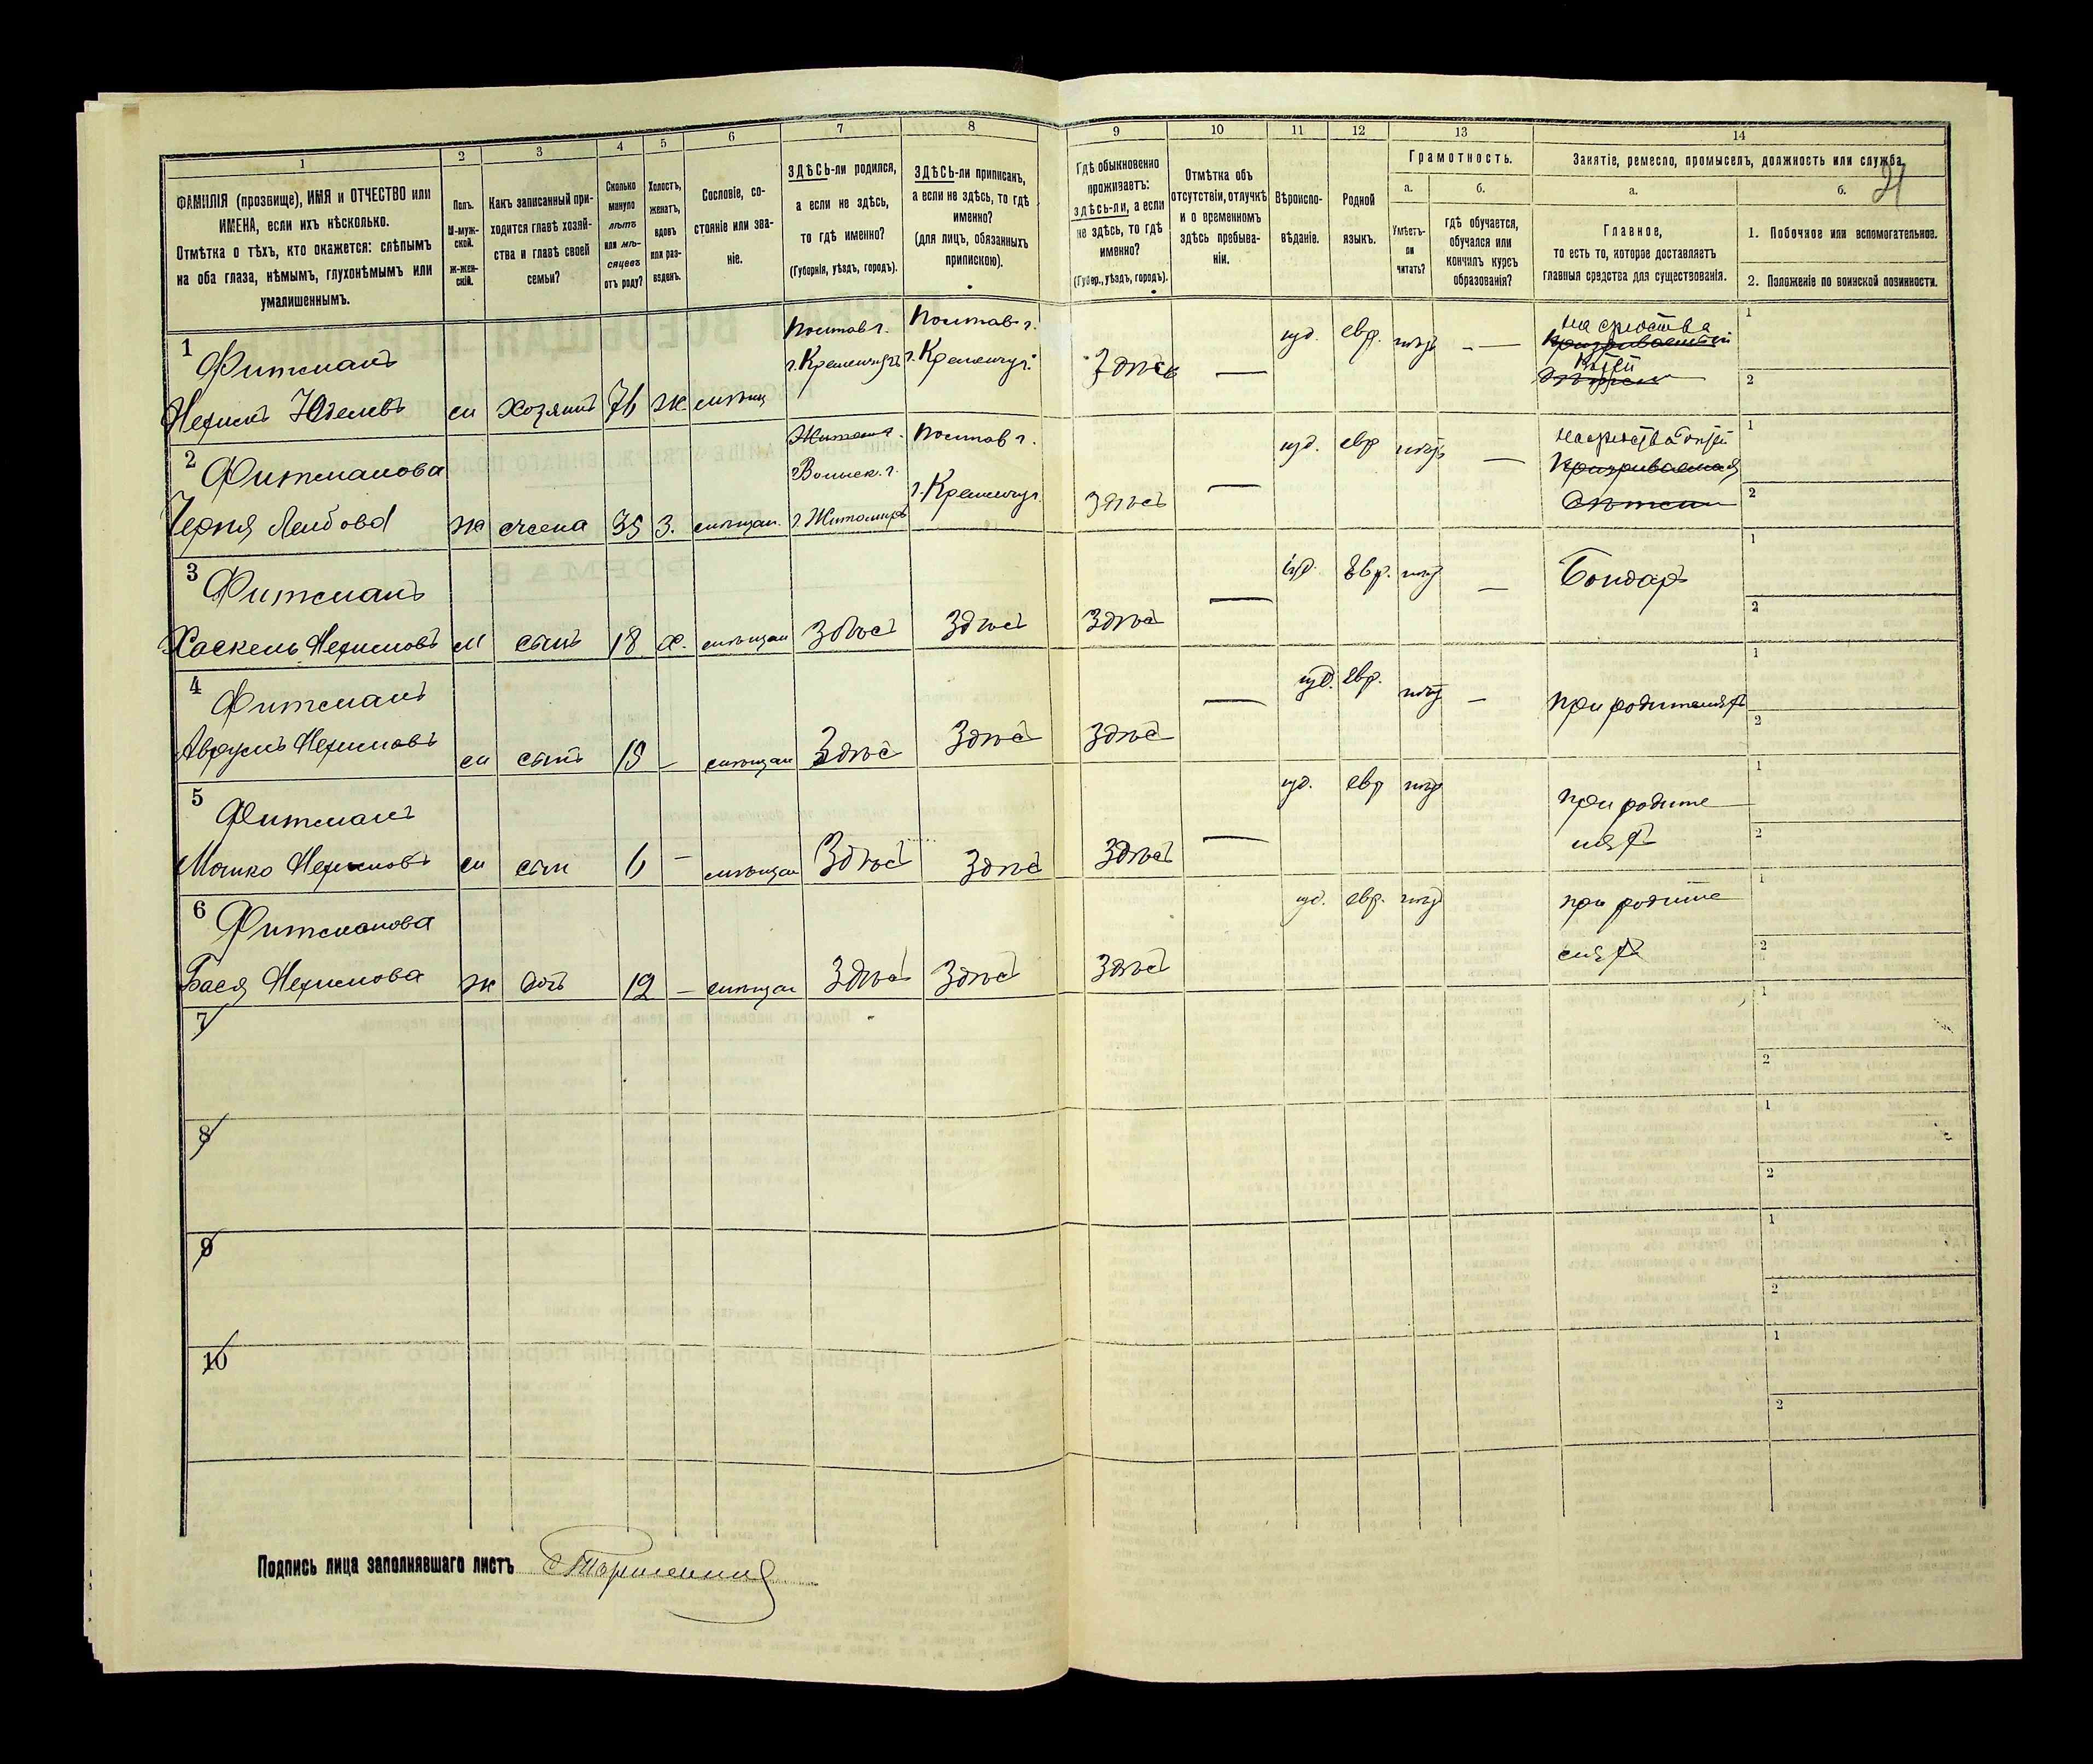 1
2
3
4
5
6
7
8
9
10
11
12
13
14
ФАМИЛІЯ (прозвище), ИМЯ и ОТЧЕСТВО или
ИМЕНА, если ихъ нѣсколько.
Отмѣтка о тѣхъ, кто окажется: слѣпымъ
на оба глаза, нѣмымъ, глухонѣмымъ или
умалишеннымъ.
Полъ.
М-муж-
ской.
ж-жен-
скій.
Какъ записанный при-
ходится главѣ хозяй-
ства и главѣ своей
семьи?
Сколько
минуло
лѣтъ
или мѣ-
сяцевъ
отъ роду?
Холостъ,
женатъ,
вдовъ
или раз-
веденъ.
Сословіе, со-
стояніе или зва-
ніе.
ЗДѢСЬ-ли родился,
а если не здѣсь,
то гдѣ именно?
(Губернія, уѣздъ, городъ).
ЗДѢСЬ-ли приписанъ,
а если не здѣсь, то гдѣ
именно?
(для лицъ, обязанныхъ
припискою).
Гдѣ обыкновенно
проживаетъ:
здѣсь-ли, а если
не здѣсь, то гдѣ
именно?
(Губер., уѣздъ, городъ).
Отмѣтка объ
отсутствіи, отлучкѣ
и о временномъ
здѣсь пребыва-
ніи.
Вѣроиспо-
вѣданіе.
Родной
языкъ.
Грамотность.
а.
Умѣетъ-
ли
читать?
б.
гдѣ обучается,
обучался или
кончилъ курсъ
образованія?
Занятіе, ремесло, промыселъ, должность или служба.
21
а.
Главное,
то есть то, которое доставляетъ
главныя средства для существованія.
б.
1. Побочное или вспомогательное.
2. Положеніе по воинской повинности.
1
Фитманъ
Полтав г.
г. Кременчугъ
Полтав г.
г. Кременчуг.
Здѣсь
—
іуд.
евр.
нѣтъ
—
на средства
дѣтей
1
2
м
хозяинъ
76
ж
мѣщ
2
Фитманова
Волынск. г.
г. Житомиръ
Полтав г.
г. Кременчуг
Здѣсь
—
іуд.
евр
нѣтъ
—
на средства дѣтей
Призриваемая
Дѣтьми
1
2
ж
жена
35
З.
мѣщан.
3
Фитманъ
Хаскель
м
сынъ
18
х.
мѣщан
Здѣсь
Здѣсь
Здѣсь
—
іуд.
Евр.
нѣтъ
—
Бондарь
1
2
4
Фитманъ
Аврумъ
м
сынъ
—
мѣщан
Здѣсь
Здѣсь
Здѣсь
—
іуд.
евр.
нѣтъ
—
при родителяхъ
1
2
5
Фитманъ
Мошко
м
сын
6
—
мѣщан
Здѣсь
Здѣсь
Здѣсь
—
іуд.
евр
нѣтъ
при родите
ляхъ
1
2
6
Фитманова
Бася
ж
дочь
12
—
мѣщан
Здѣсь
Здѣсь
Здѣсь
іуд.
евр.
нѣтъ
при родите
ляхъ
1
2
7
1
2
8
1
2
9
1
2
10
1
2
Подпись лица заполнявшаго листъ